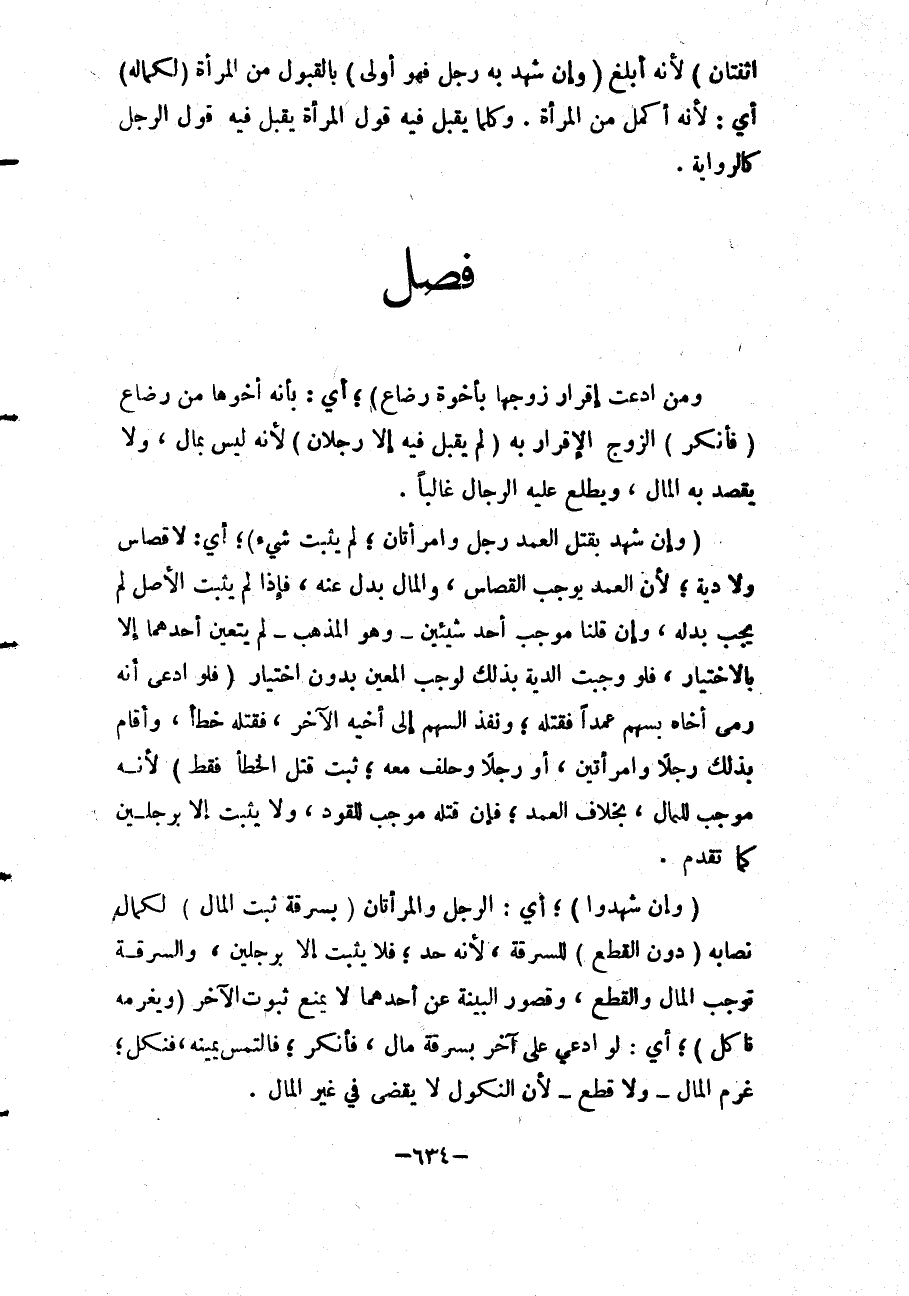 اثنتان ) لأنه أبلغ ( وإن شهد به رجل فهو أولى ) بالقبول من المرأة (لكماله)
أي : لأنه أكمل من المرأة . وكلما يقبل فيه قول المرأة يقبل فيه قول الرجل
كالرواية .
فصل
ومن ادعت إقرار زوجها بأخوة رضاع) ؛ أي : بأنه أخوها من رضاع
( فأنكر ) الزوج الإقرار به ( لم يقبل فيه إلا رجلان ) لأنه ليس بمال ، ولا
يقصد به المال ، ويطلع عليه الرجال غالباً .
( وإن شهد بقتل العمد رجل وامرأتان ؛ لم يثبت شيء)؛ أي: لا قصاس
ولا دية ؛ لأن العمد يوجب القصاس ، والمال بدل عنه ، فإذا لم يثبت الأصل لم
يجب بدله ، وإن قلنا موجب أحد شيئين - وهو المذهب - لم يتعين أحدهما إلا
بالاختيار ، فلو وجبت الدية بذلك لوجب المعين بدون اختيار ( فلو ادعى أنه
رمى أخاه بسهم عمداً فقتله ؛ ونفذ السهم إلى أخيه الآخر ، فقتله خطأ ، وأقام
بذلك رجلًا وامرأتين ، أو رجلًا وحلف معه ؛ ثبت قتل الخطأ فقط ) لأنه
موجب للمال ، بخلاف العمد ؛ فإن قتله موجب للقود ، ولا يثبت إلا برجلين
كما تقدم .
( وإن شهدوا ) ؛ أي : الرجل والمرأتان ( بسرقة ثبت المال ) لكمال
نصابه ( دون القطع ) للسرقة ، لأنه حد ؛ فلا يثبت إلا برجلين ، والسرقة
توجب المال والقطع ، وقصور البينة عن أحدهما لا يمنع ثبوت الآخر (ويغرمه
ناكل ) ؛ أي : لو ادعي على آخر بسرقة مال ، فأنكر ؛ فالتمس يمينه، فنكل؛
غرم المال - ولا قطع - لأن النكول لا يقضى في غير المال .
-٦٣٤-